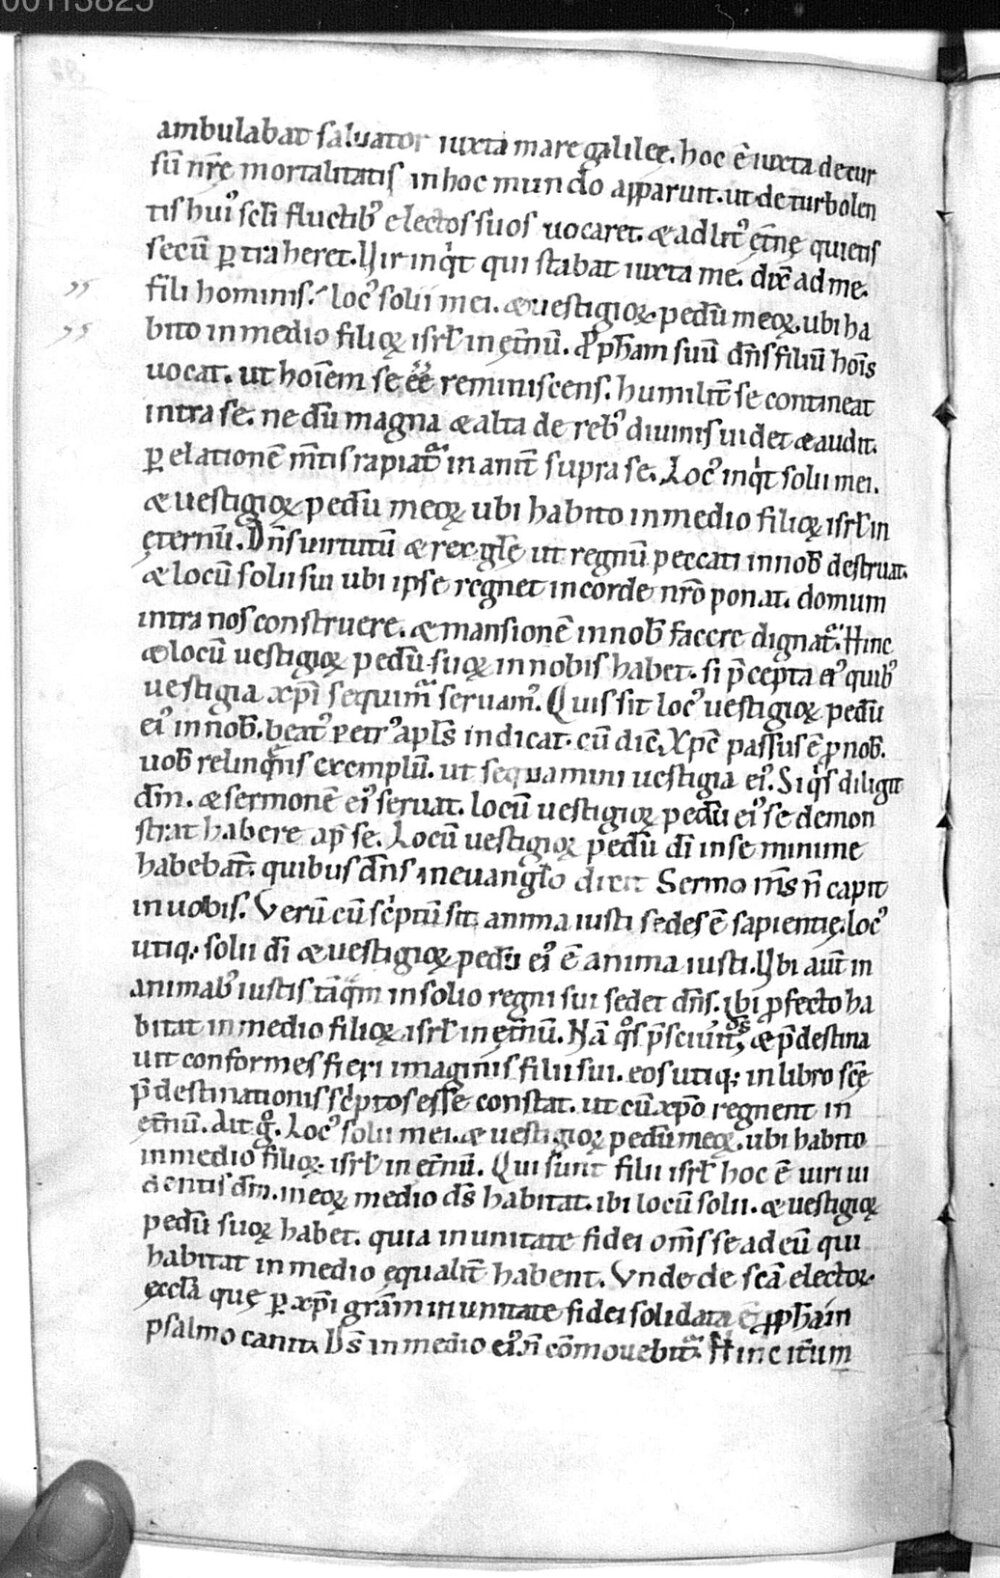 00113825
ambulabat saluator iuxta mare galileę. hoc ē iuxta decur
sū nr̄ę mortalitatis in hoc mundo apparuit. ut de turbolen
tis huiꝰ scl̄i fluctibꝰ electos suos uocaret. & ad litꝰ ęt̄nę quietis
secū ꝑtraheret. Vir inqͥt qui stabat iuxta me. dix̄ ad me.
fili hominis. locꝰ solii mei. & uestigioꝝ pedū meoꝝ. ubi ha
bito in medio filioꝝ isrl̄ in ęt̄nū. Ꝓph̄am suū dn̄s filiū hoīs
uocat. ut hoīem se ēē reminiscens. humilit̄ se contineat
intra se. ne dū magna & alta de rebꝰ diuinis uidet & audit.
ꝑ elationē m̄tis rapiat᷑ inanit̄ supra se. Locꝰ inqͥt solii mei.
& uestigioꝝ pedū meoꝝ ubi habito in medio filioꝝ isrl̄ in
ęternū. Dn̄s uirtutū & rex gl̄ę ut regnū peccati in nob̄ destruat.
& locū solii sui ubi ipse regnet in corde nr̄o ponat. domum
intra nos construere. & mansionē in nob̄ facere dignat᷑. Hinc
& locū uestigioꝝ pedū suoꝝ in nobis habet. si p̄cepta eiꝰ quibꝰ
uestigia xp̄i sequimur seruamꝰ. Quis sit locꝰ uestigioꝝ pedū
eiꝰ in nob̄. beatꝰ petrꝰ apl̄s indicat. cū dic̄. Xp̄c passus ē ꝓ nob̄.
uob̄ relinqͥns exemplū. ut sequamini uestigia eiꝰ. Siqͥs diligit
dm̄. & sermonē eiꝰ seruat. locū uestigioꝝ pedū eiꝰ se demon
strat habere ap̄ se. Locū uestigioꝝ pedū dī in se minime
habebat̄. quibus dn̄s in euanglo dicit Sermo m̄s n̄ capit
in uobis. Verū cū scͥptū sit. anima iusti sedes ē sapientię. locꝰ
utiq; solii dī & uestigioꝝ pedū eiꝰ ē anima iusti. Vbi aut̄ in
animabꝰ iustis tāqͣm in solio regni sui sedet dn̄s. ibi ꝓfecto ha
bitat in medio filioꝝ isrl̄ in ęt̄nū. Nā qͦs p̄sciuit, & p̄destina
uit conformes fieri imaginis filii sui. eos utiq; in libro scę
p̄destinationis scͥptos esse constat. ut cū xp̄o regnent in
ęt̄nū. Ait gͦ. Locꝰ solii mei. & uestigioꝝ pedū meoꝝ. ubi habito
in medio filioꝝ isrl̄ in ęt̄nū. Qui sunt filii isrl̄ hoc ē uiri ui
dentis dm̄. in eoꝝ medio ds̄ habitat. ibi locū solii. & uestigioꝝ
pedū suoꝝ habet. quia in unitate fidei om̄s se ad eū qui
habitat in medio ęqualit̄ habent. Vnde de scā elector.
ęccl̄a quę ꝑ xp̄i grām in unitate fidei solidata ē ꝓph̄am
psalmo canit. Ds̄ in medio eiꝰ n̄ cōmouebit᷑. Hinc it̄um